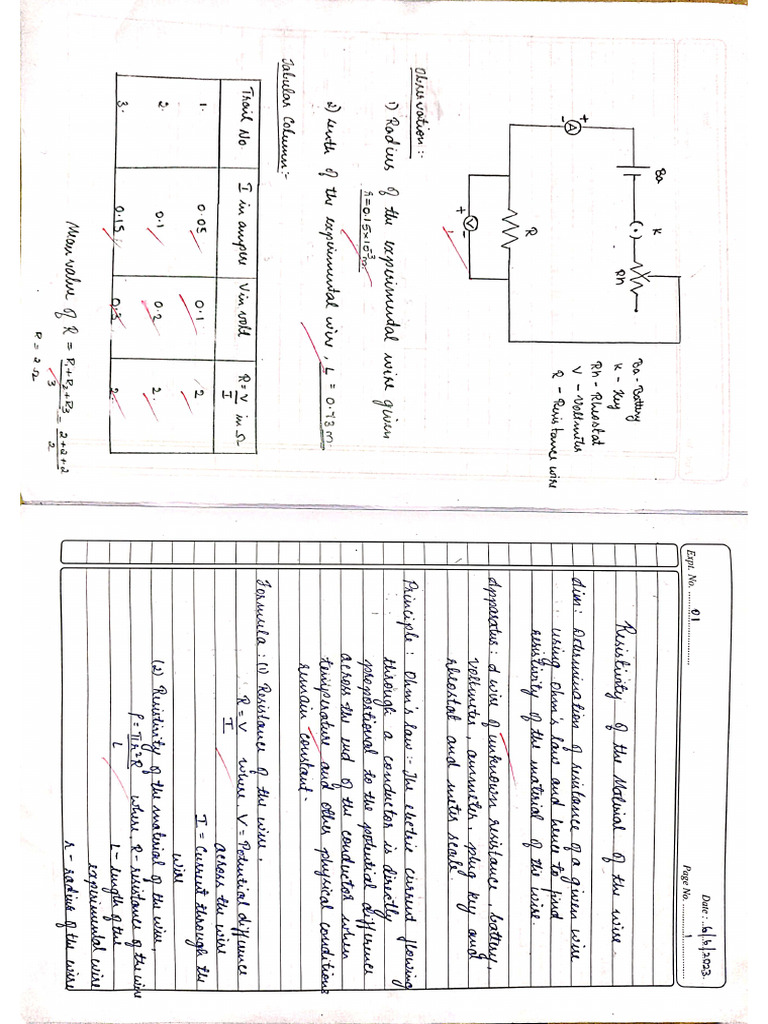 Ba
K
Rh
A
+
-
R
V
+
-
Ba - Battery
K - Key
Rh - Rheostat
V - Voltmeter
R - Resistance wire
Observation :-
1) Radius of the experimental wire given
r = 0.15 x 10⁻³ m
2) Lenth of the experimental wire, L = 0.73 m.
Tabular Column:-
Trail No. I in ampere V in volt R = V/I in Ω
1. 0.05 0.1 2
2. 0.1 0.2 2.
3. 0.15 0.3 2.
Mean value of R = R₁+R₂+R₃/3 = 2+2+2/2
R = 2 Ω
Expt. No. 01
Date : 6/6/2023
Page No. 1
Resistivity of the Material of the wire.
Aim: Determination of resistance of a given wire
using Ohm's law and hence to find
resistivity of the material of the wire.
Apparatus: A wire of unknown resistance, battery,
voltmeter, ammeter, plug key and
rheostat and meter scale.
Principle : Ohm's law :- The electric current flowing
through a conductor is directly
proportional to the potential difference
across the end of the conductor when
temperature and other physical conditions
remain constant.
Formula : (1) Resistance of the wire,
R = V/I where, V = Potential difference
across the wire
I = Current through the
wire
(2) Resistivity of the material of the wire,
ρ = πr²R/L where, R - resistance of the wire
L - length of the
experimental wire
r - radius of the wire